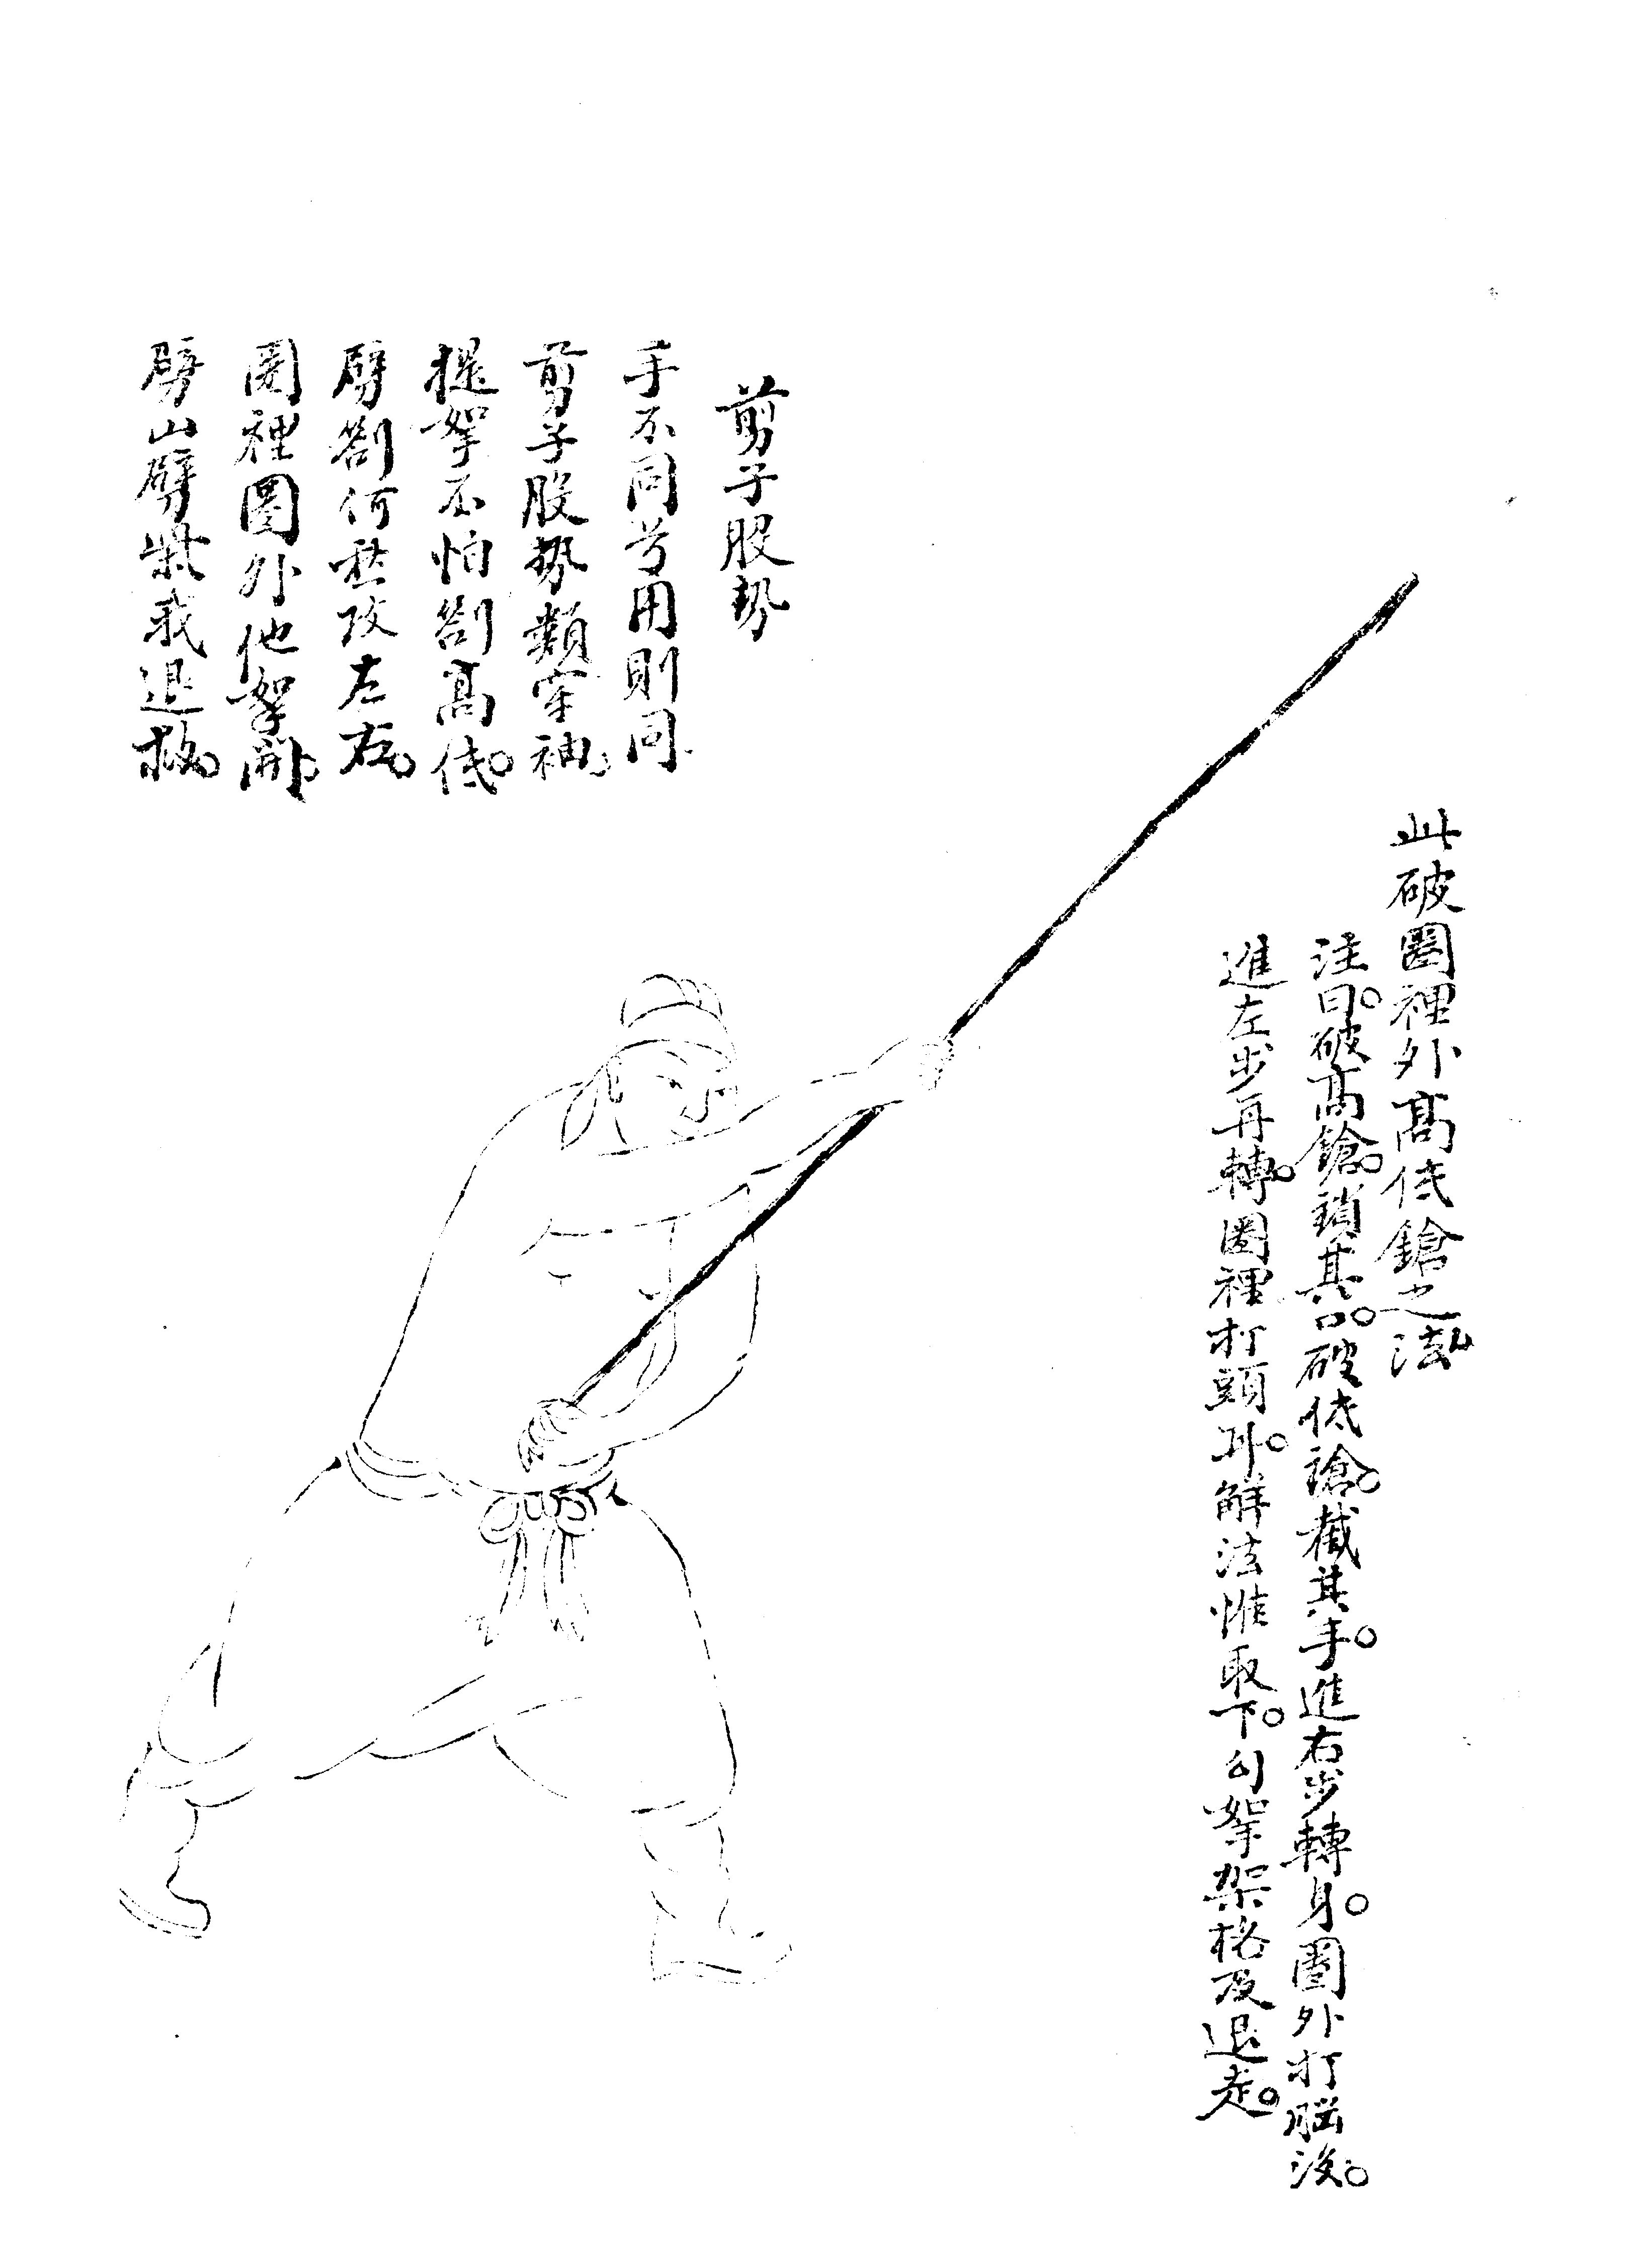 此破圈裡外高低鎗之法
注曰。破高鎗。鎖其口。破低鎗。截其手。進右步轉身。圈外打腦後。
進左步再轉。圈裡打頭耳。解法惟取下。勾拏架格及退走。
剪子股勢
手不同兮用則同
剪子股勢類穿袖。
提拏不怕劄高低。
劈劄何愁攻左右。
圈裡圈外他拏開。
劈山劈 我退救。